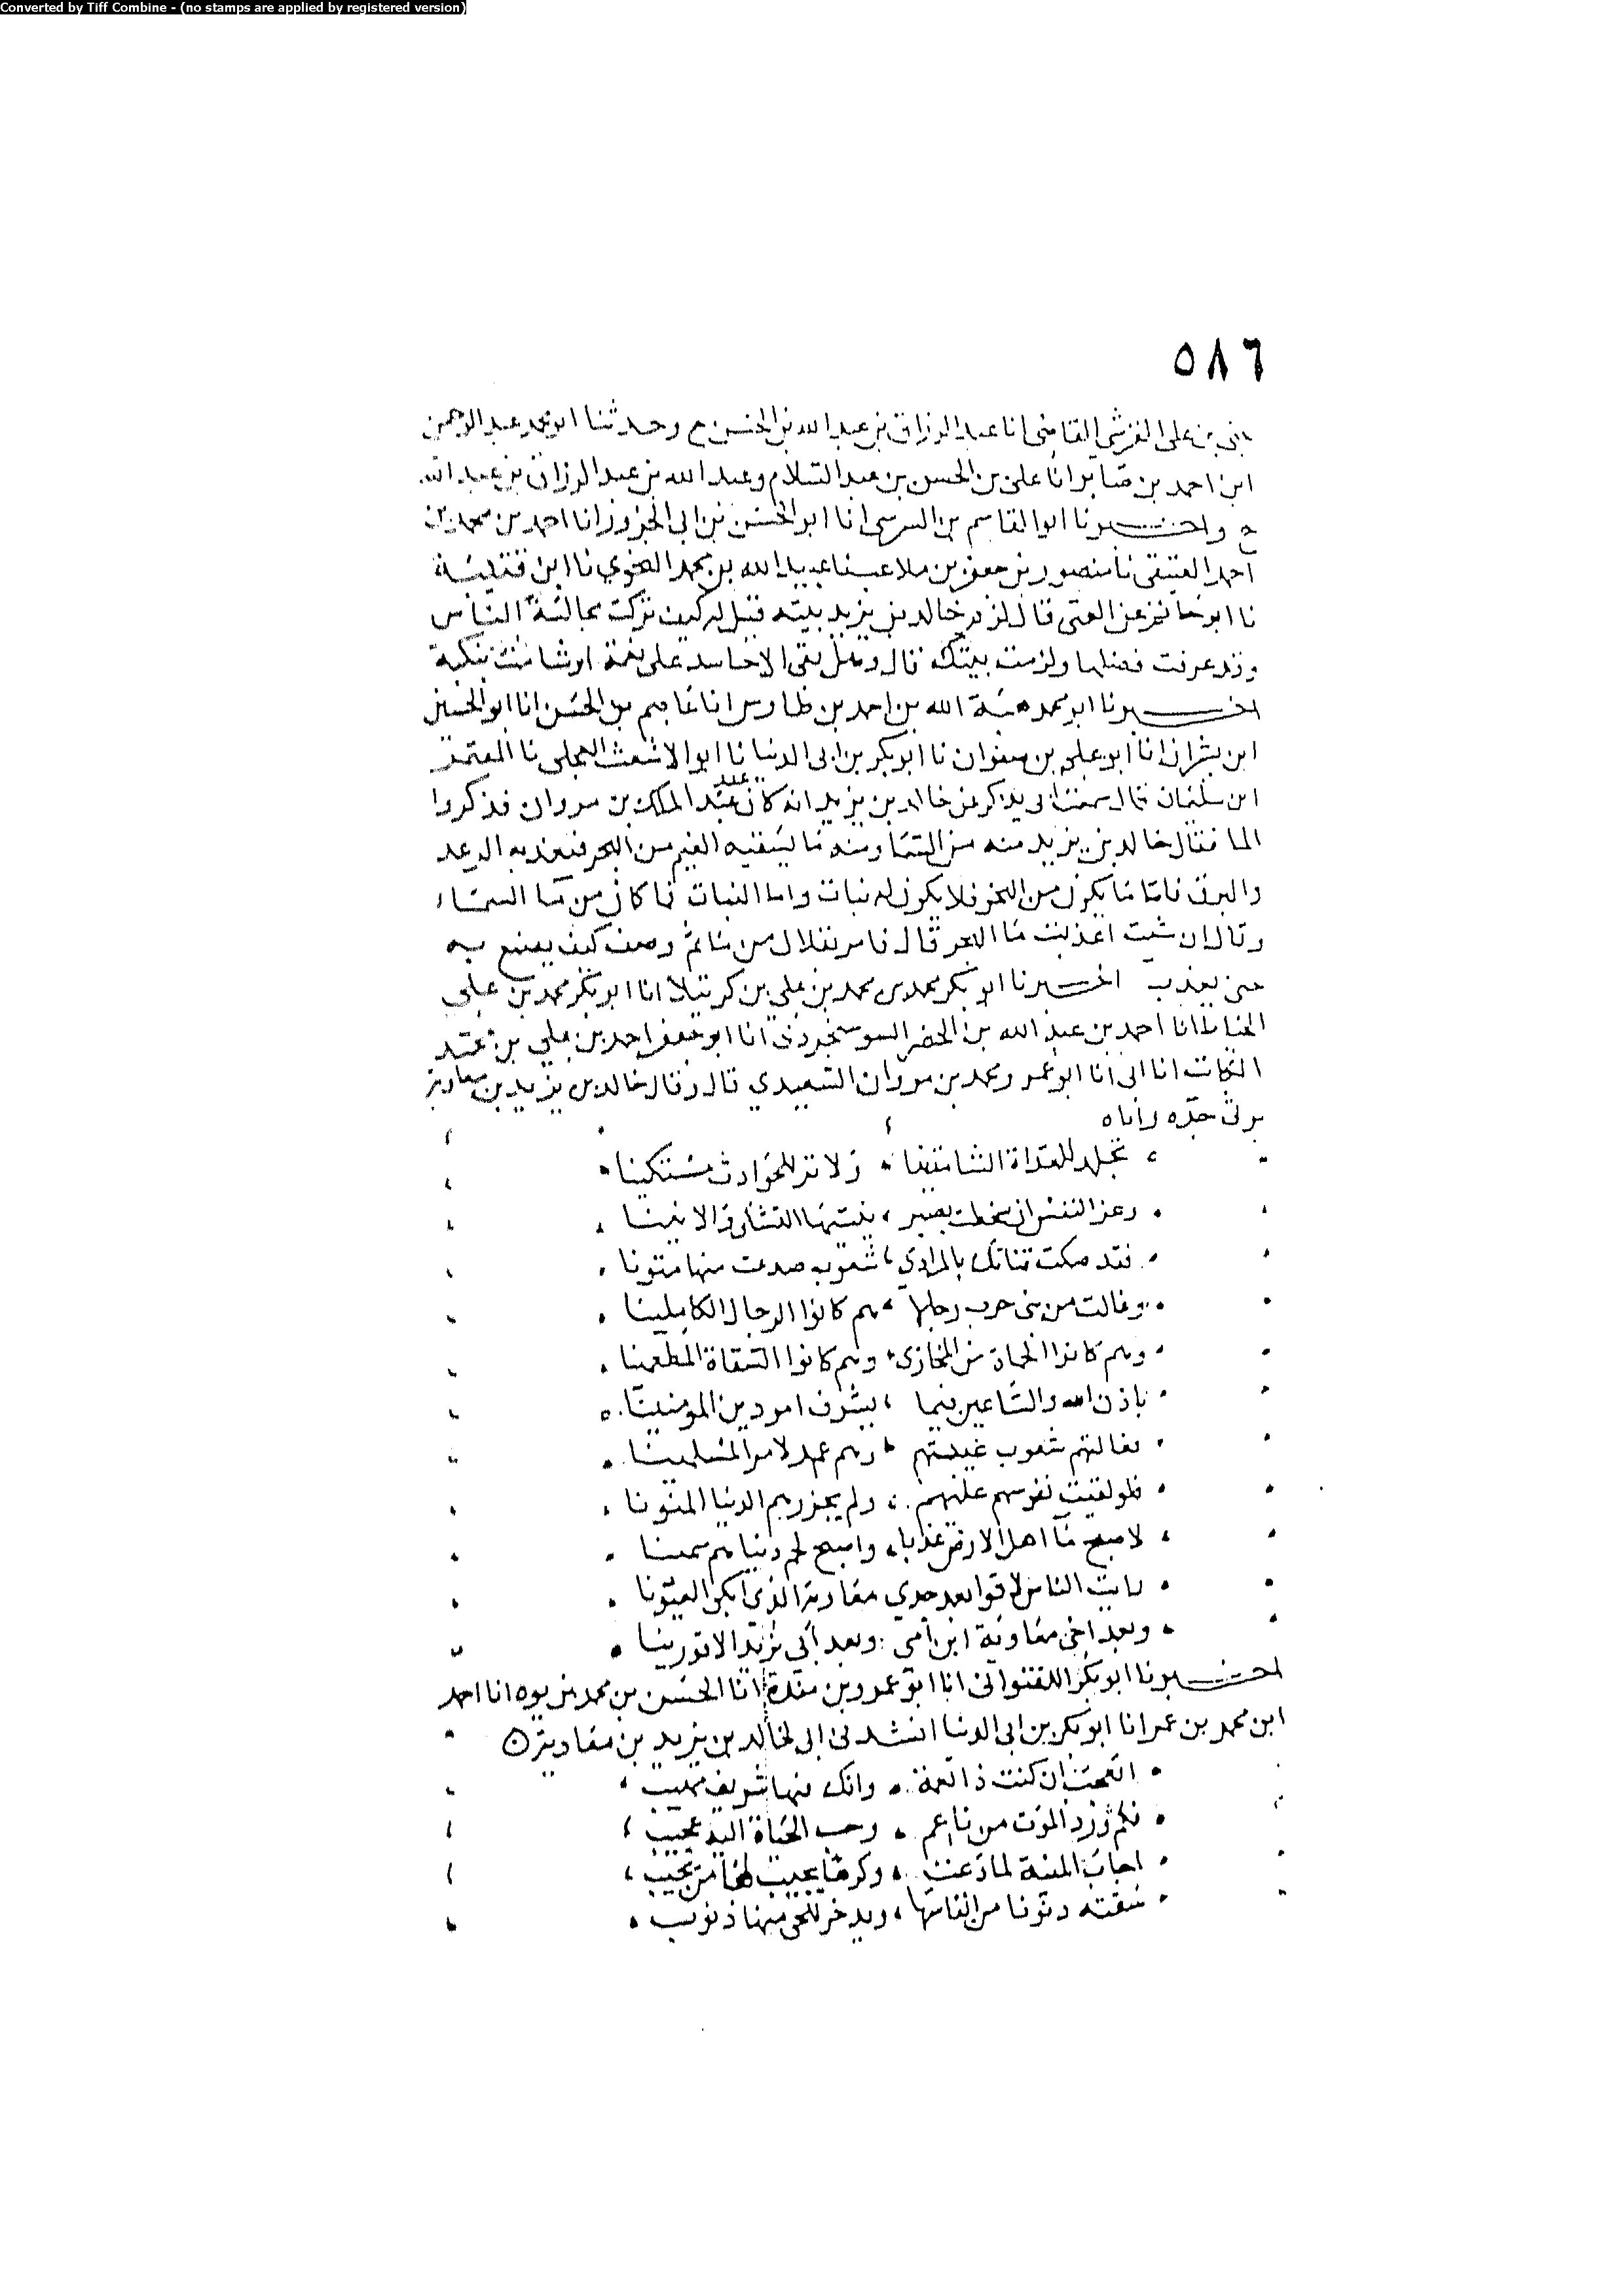 Converted by Tiff Combine - (no stamps are applied by registered version)
٥٨٦
بن علي القرشي القاضي انا عبد الرزاق بن عبد الله بن الحسن ح وحدثنا ابو محمد عبد الرحمن
ابن احمد بن صابر انا علي بن الحسن بن عبد السلام وعبد الله بن عبد الرزاق بن عبد الله
ح واخبرنا ابو القاسم بن السوسي انا ابو الحسن بن ابي الحزور انا احمد بن محمد بن
احمد العتيقي نا منصور بن جعفر بن ملاعب نا عبيد الله بن محمد النحوي نا ابن قتيبة
نا ابو حاتم عن العتبي قال لزم خالد بن يزيد بيته فقيل له كيف تركت مجالسة الناس
وقد عرفت فضلها ولزمت بيتك قال وهل بقي الا حاسد على نعمة او شامت بنكبة
اخبرنا ابو محمد هبة الله بن احمد بن طاوس انا عاصم بن الحسن انا ابو الحسين
ابن بشران انا ابو علي بن صفوان نا ابو بكر بن ابي الدنيا نا ابو الاشعث العجلي نا المعتمر
ابن سليمان قال سمعت ابي يذكر عن خالد بن يزيد انه كان عند عبد الملك بن مروان فذكروا
الما فقال خالد بن يزيد منه من السما ومنه ما يسقيه الغيم من البحر فيعذبه الرعد
والبرق فاما ما يكون من البحر فلا يكون له نبات واما النبات فما كان من ما السماء
وقال ان شيت اعذبت ما البحر قال فامر بقلال من ما ثم وصف كيف يصنع به
حتى يعذب اخبرنا ابو بكر محمد بن محمد بن علي بن كرتيلا انا ابو بكر محمد بن علي
الخياط انا احمد بن عبد الله بن الخضر السوسنجردي انا ابو جعفر احمد بن علي بن محمد
الكاتب انا ابي انا ابو عمرو محمد بن مروان السعيدي قال وقال خالد بن يزيد بن معاوية
يرثي جده واباه
تجلد للعداة الشامتينا ولا تر للحوادث مستكينا
وعز النفس ان سخطت بصبر
فقد صكت قناتك بالمرادي شعوب صدعت منها متونا
وغالت من بني حرب رجالا هم كانوا الرجال الكاملينا
وهم كانوا الحماة من المخازي وهم كانوا السقاة المطعمينا
باذن الله والساعين فيما يشرف امر دين المومنينا
فغالتهم شعوب غيبتهم وهم عمد لامر المسلمينا
فلو لقيت نفوسهم عليهم ولم يجزرهم الدنيا المنونا
لاصبح ما اهل الارض عذبا واصبح لحم دنياهم سمينا
رايت الناس لاقوا بعد جدي معاوية الذي ابكى العيونا
وبعد اخي معاوية ابن امي وبعد ابي يزيد الاقورينا
اخبرنا ابو بكر اللفتواني انا ابو عمرو بن مندة انا الحسن بن محمد بن يوه انا احمد
ابن محمد بن عمر انا ابو بكر بن ابي الدنيا انشدني ابي لخالد بن يزيد بن معاوية
اتعجب ان كنت ذا نعمة وانك فيها شريف مهيب
فكم ورد الموت من ناعم وحب الحياة اليه عجيب
اجاب المنية لما دعت وكرها يجيب لها من يجيب
سقته ذنوبا من انفاسها ويدخر للحي منها ذنوب